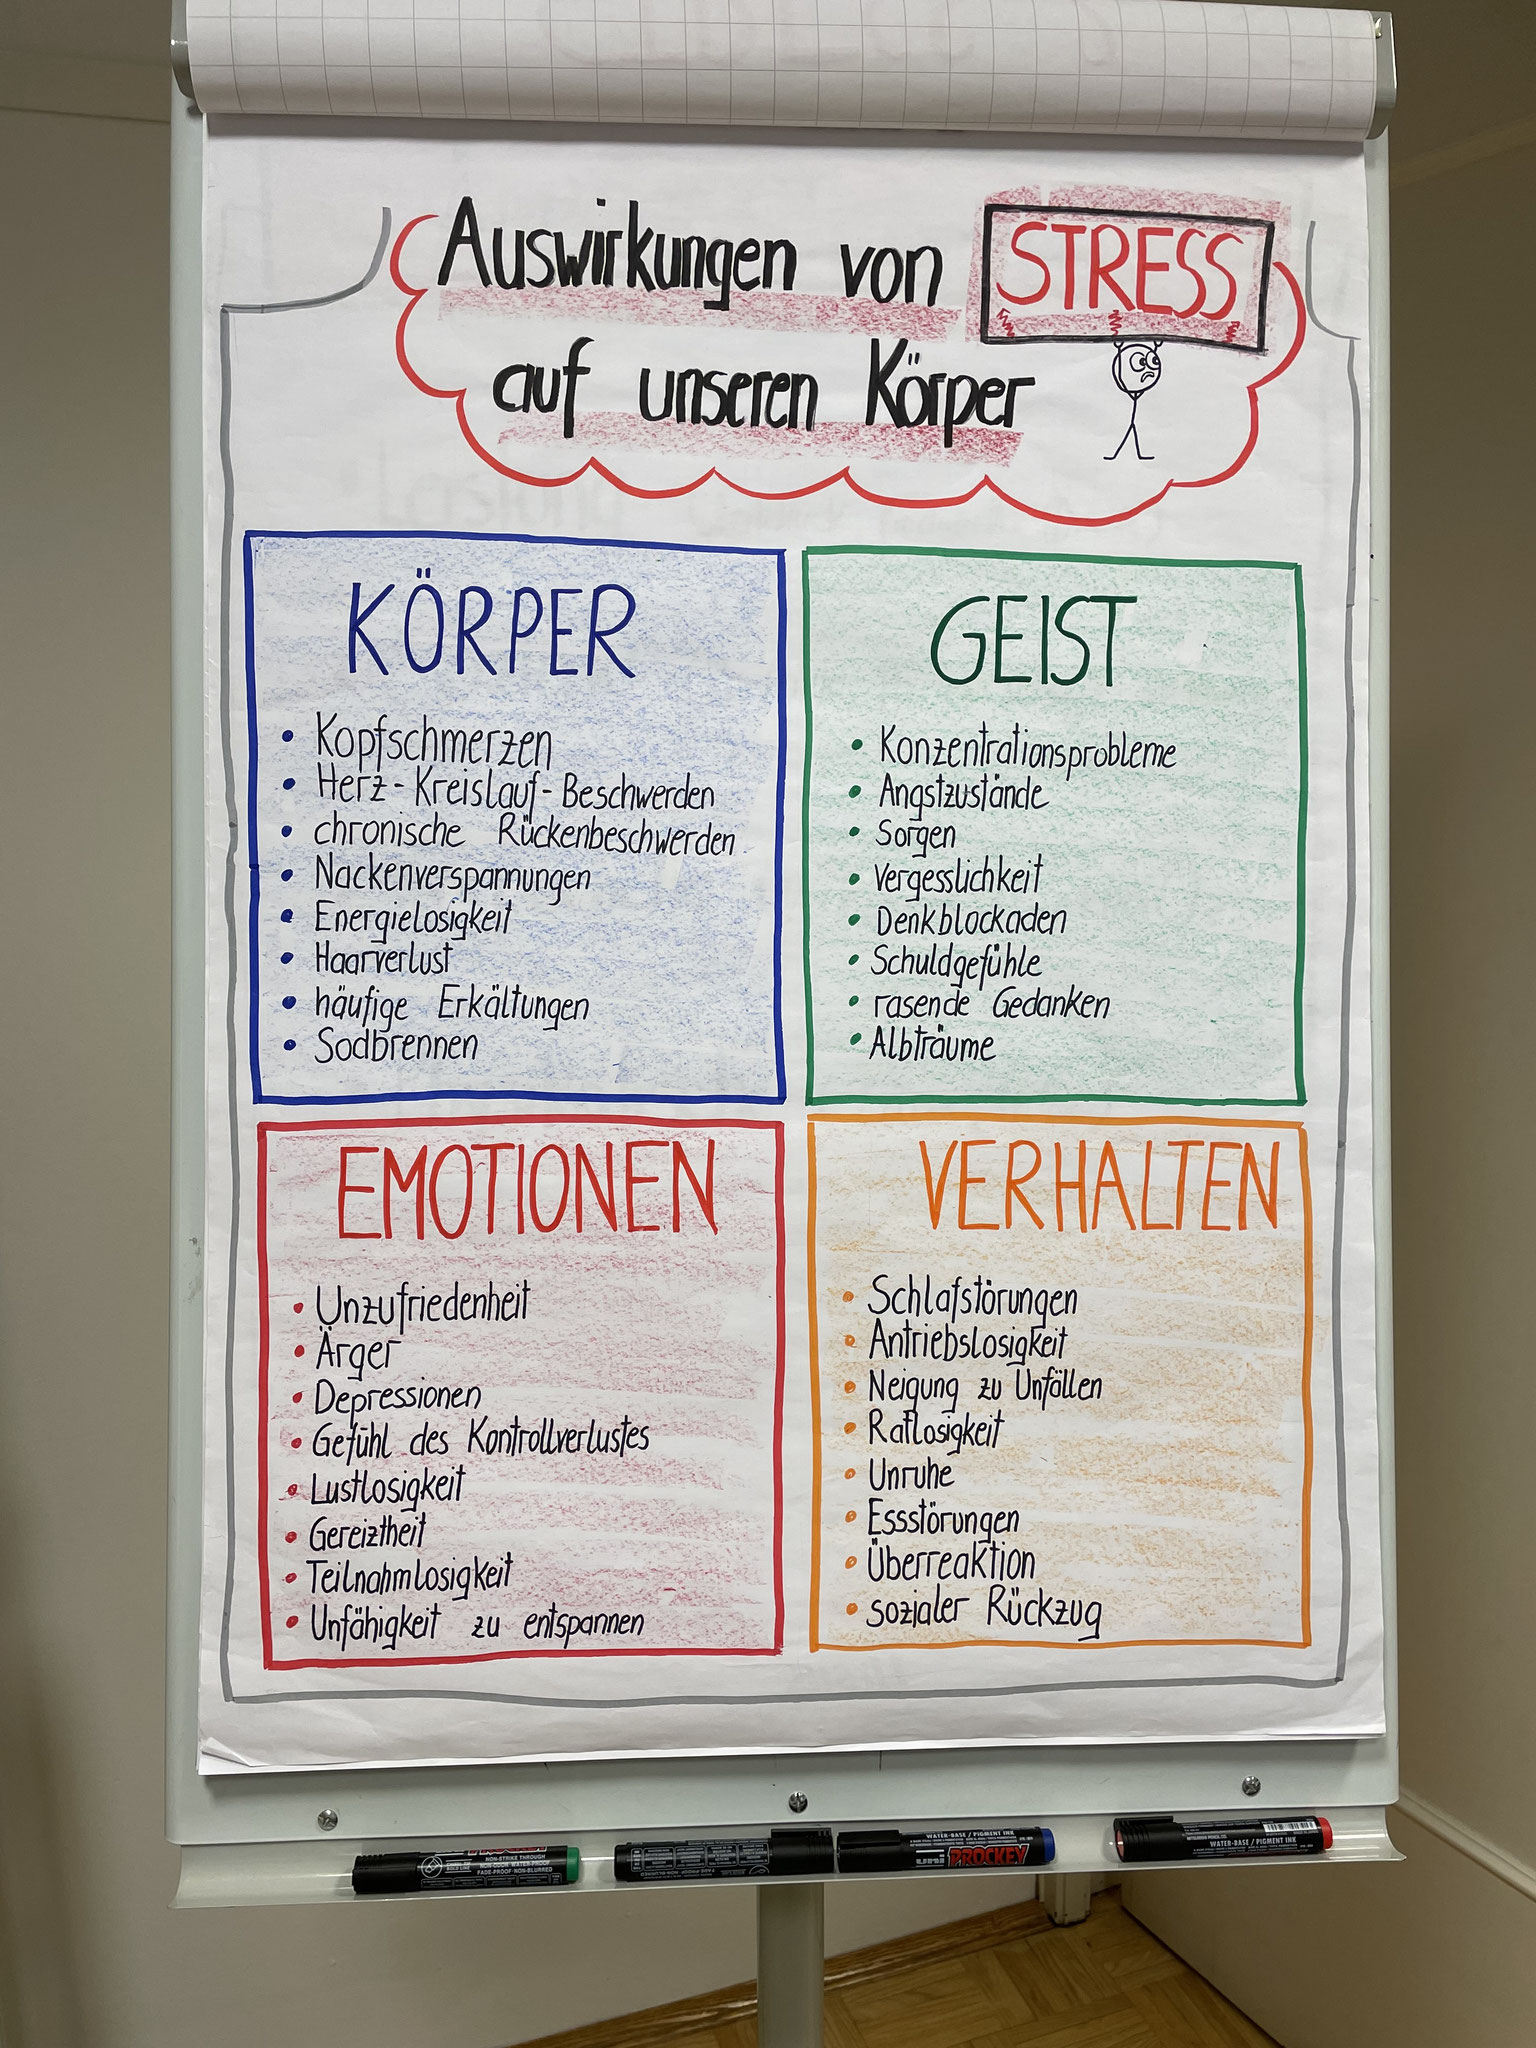 Auswirkungen von STRESS
auf unseren Körper
KÖRPER
• Kopfschmerzen
• Herz-Kreislauf-Beschwerden
• chronische Rückenbeschwerden
• Nackenverspannungen
• Energielosigkeit
• Haarverlust
• häufige Erkältungen
• Sodbrennen
GEIST
• Konzentrationsprobleme
• Angstzustände
• Sorgen
• Vergesslichkeit
• Denkblockaden
• Schuldgefühle
• rasende Gedanken
• Albträume
EMOTIONEN
• Unzufriedenheit
• Ärger
• Depressionen
• Gefühl des Kontrollverlustes
• Lustlosigkeit
• Gereiztheit
• Teilnahmlosigkeit
• Unfähigkeit zu entspannen
VERHALTEN
• Schlafstörungen
• Antriebslosigkeit
• Neigung zu Unfällen
• Ratlosigkeit
• Unruhe
• Essstörungen
• Überreaktion
• sozialer Rückzug
PROCKEY
NON-STRIKE THROUGH
NON-ODOR·WATER-PROOF
FADE-PROOF·NON-BLURRED
WATER-BASE / PIGMENT INK
uni PROCKEY
WATER-BASE / PIGMENT INK